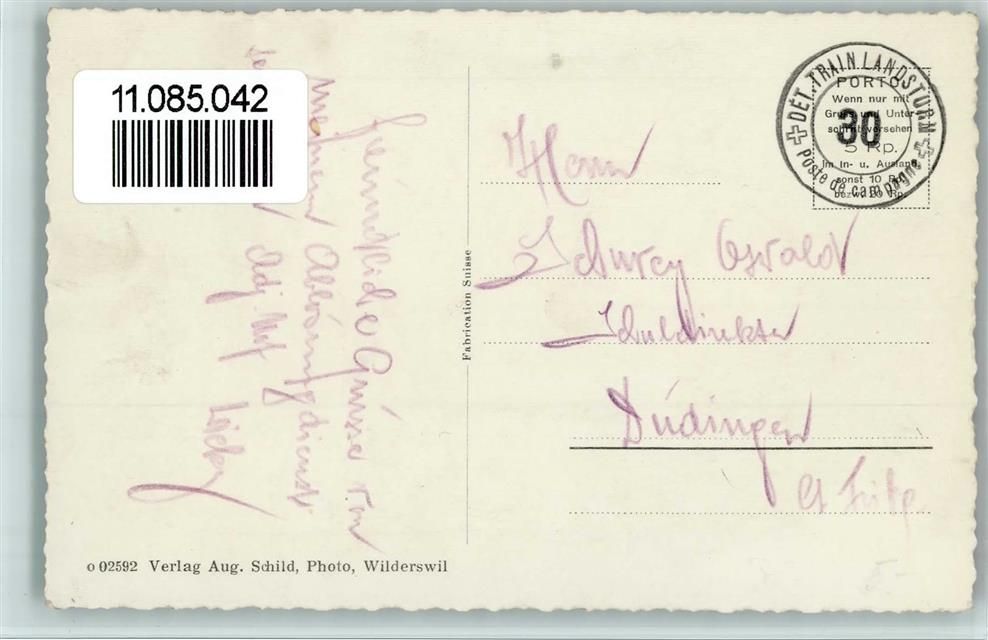 11.085.042
Freundliche Grüsse von
meinem Ablösungsdienst
Adj. Uof
DÉT. TRAIN LANDSTURM
30
Poste de campagne
PORTO
Wenn nur mit
Gruss und Unter-
schrift versehen
5 Rp.
im In- u. Ausland
sonst 10 Rp.
bezw. 20 Rp.
Herrn
Schuwey Oswald
Schuldirektor
Düdingen
Ct. Frbg.
Fabrication Suisse
o 02592 Verlag Aug. Schild, Photo, Wilderswil